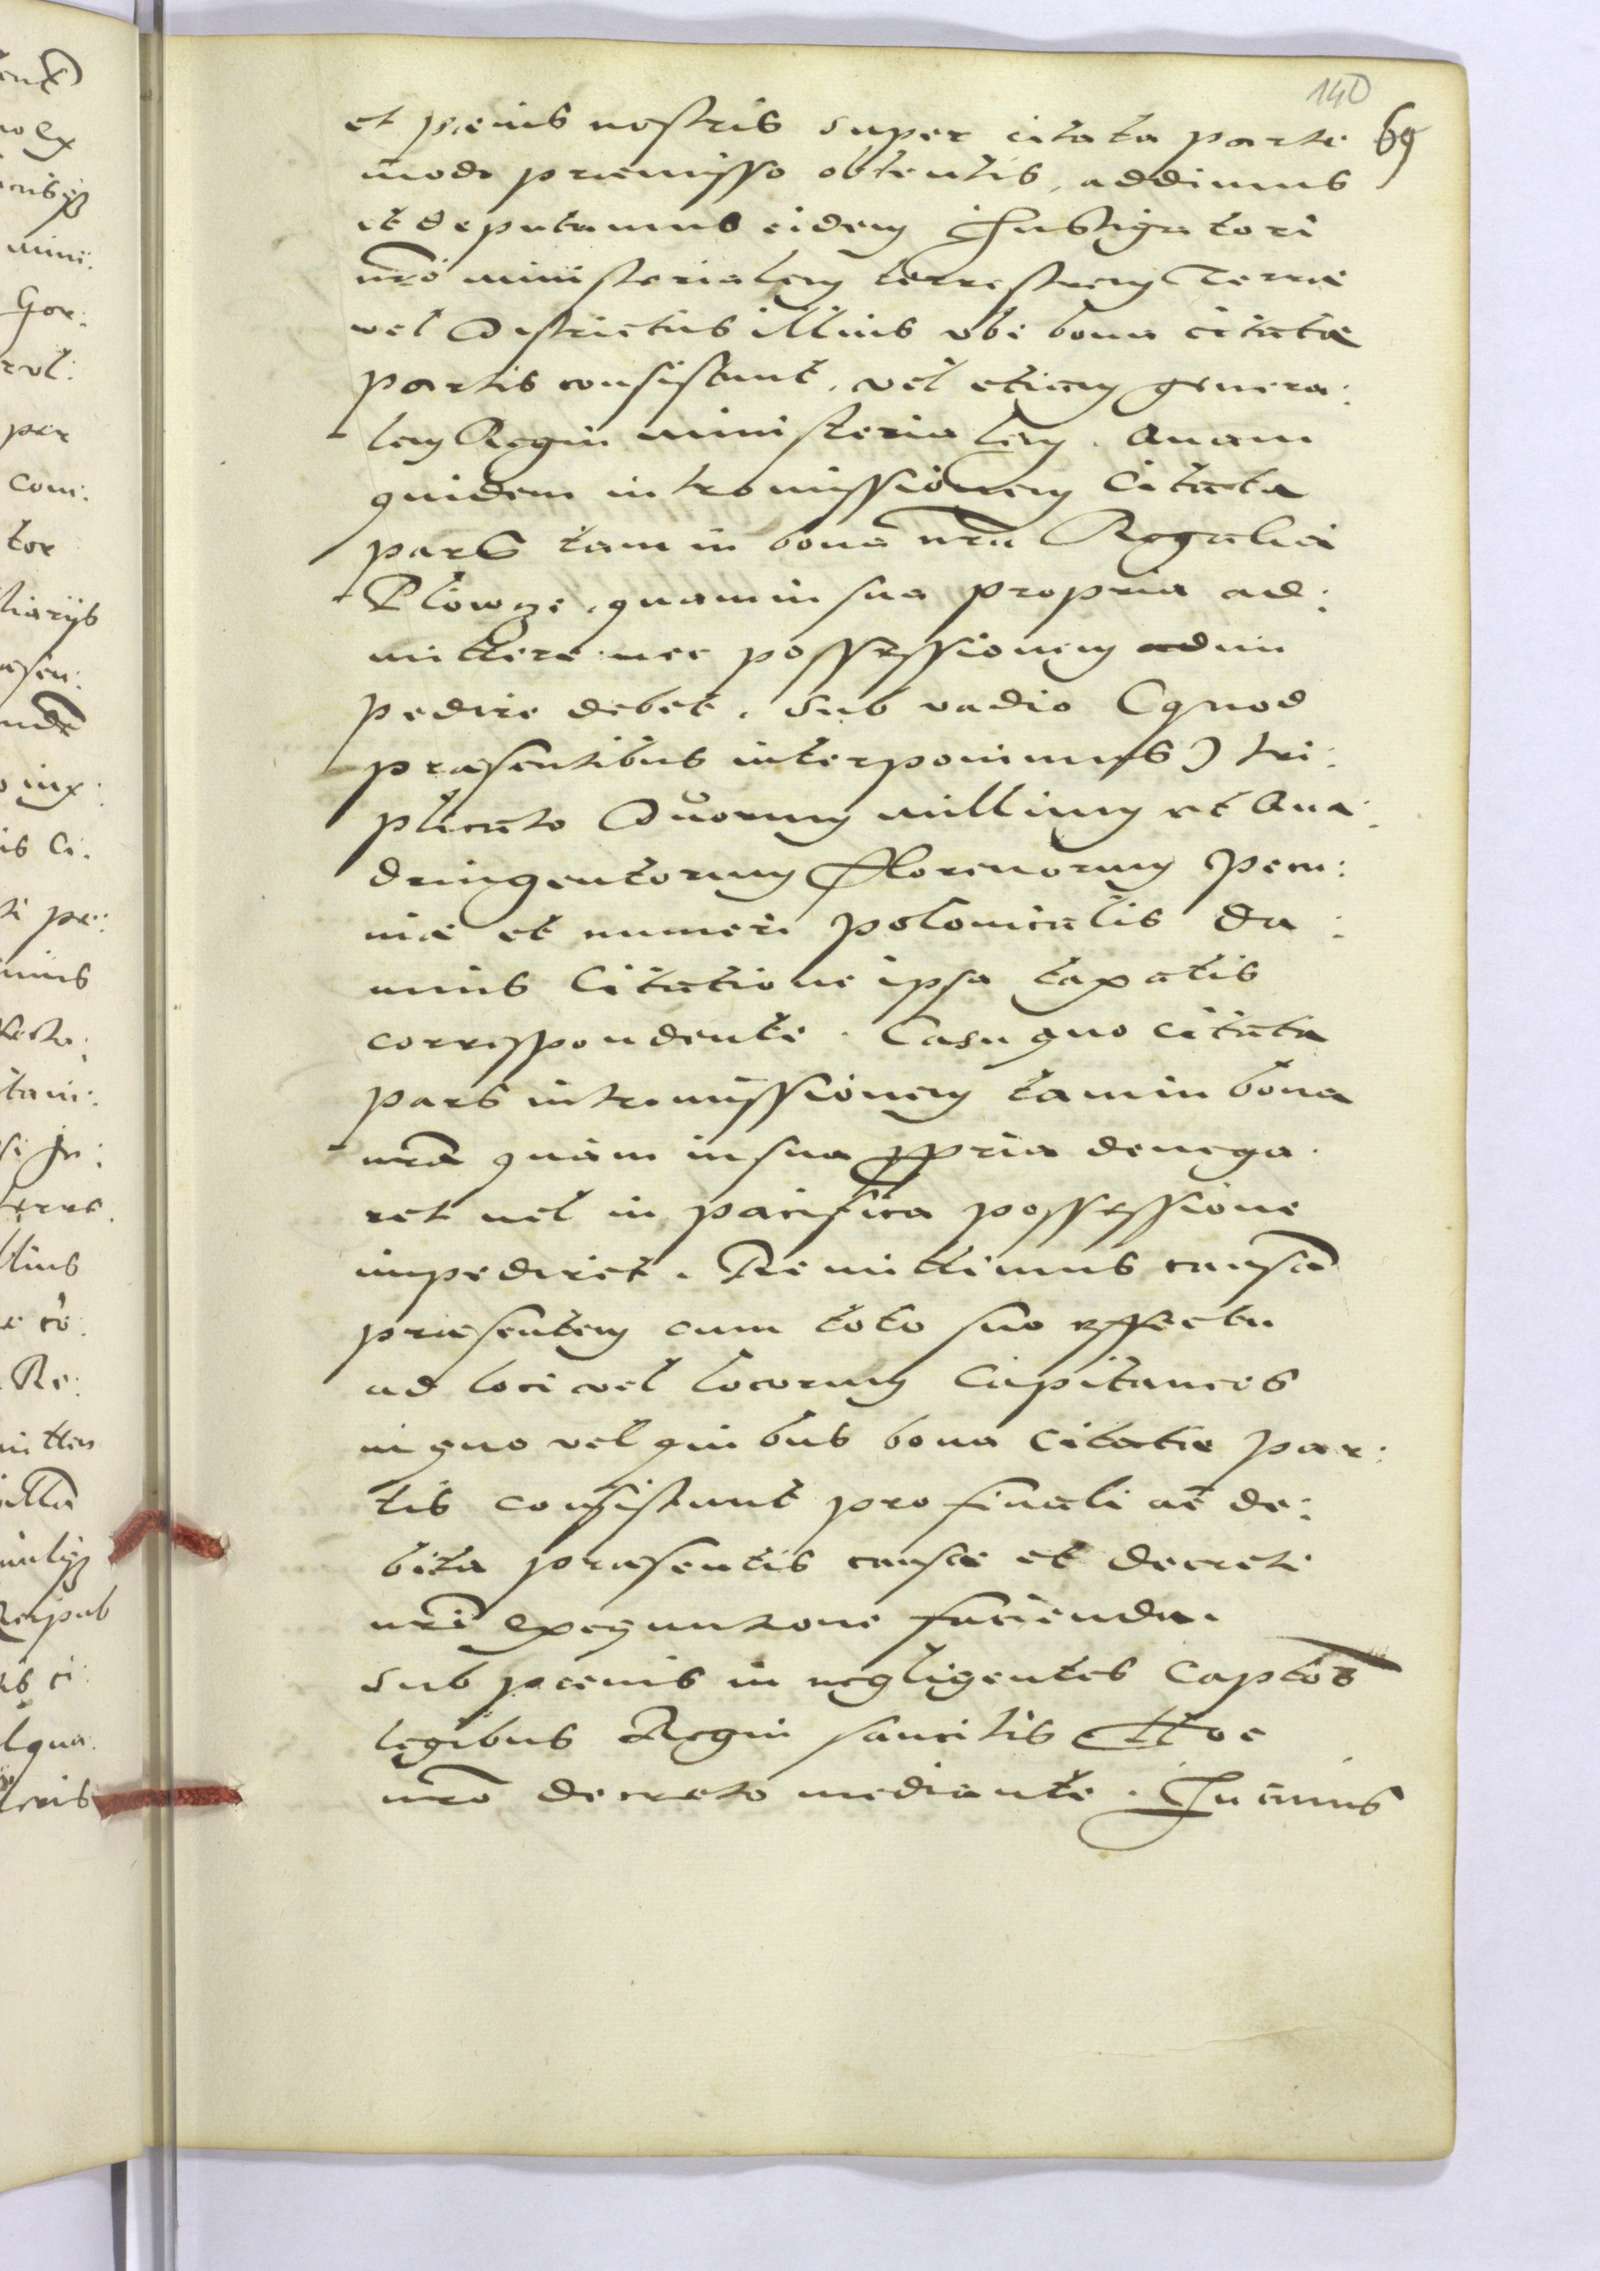 140
69
et pænis nostris super citata parte
modo præmisso obtentis, addimus
et deputamus eidem Instigatori
nr̃o ministerialem terrestrem Terræ
vel Districtus illius vbi bona citatæ
partis consistunt, vel etiam genera:
lem Regni ministerialem. Quam
quidem intromissionem Citata
pars tam in bona nr̃a Regalia
Plowze, quam in sua propria ad:
mittere nec possessionem
pedire debet, sub vadio (quod
præsentibus interponimus) tri:
plicato Duorum millium et Qua:
dringentorum Florenorum Pecu:
niæ et numeri polonicalis da:
mnis Citatione ipsa taxatis
correspondente. Casu quo citata
pars intromissionem tam in bona
nr̃a quam in sua ppria denega:
ret vel in pacifica possessione
impediret. Remittimus causã
præsentem cum toto suo effectu
ad loci vel locorum Capitaneos
in quo vel quibus bona Citatæ par:
tis consistunt pro finali ac de:
bita præsentis causæ et decreti
nr̃i exequutione facienda.
sub pœnis in negligentes Captos
legibus Regni sancitis Hoc
nr̃o decreto mediante. In cuius
ent̃
mini:
Gor:
per
com:
tor
is Ci:
tani:
Re: